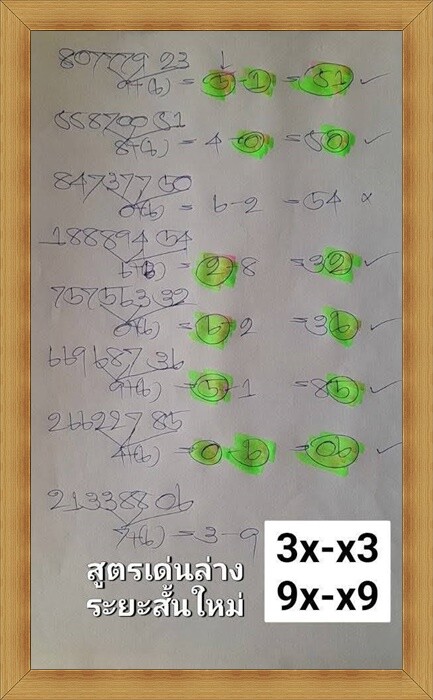 807779 23
9+(6) = 5-1 = 51 ✓
558700 51
8+(6) = 4-0 = 50 ✓
847377 50
0+(6) = 6-2 = 54 ×
188894 54
= 2-8 = 32 ✓
757563 32
0+(6) = 6-2 = 36 ✓
669687 36
9+(6) = 5-1 = 85 ✓
266227 85
4+(6) = 0-6 = 06 ✓
213388 06
7+(6) = 3-9
สูตรเด่นล่าง
ระยะสั้นใหม่
3x-x3
9x-x9